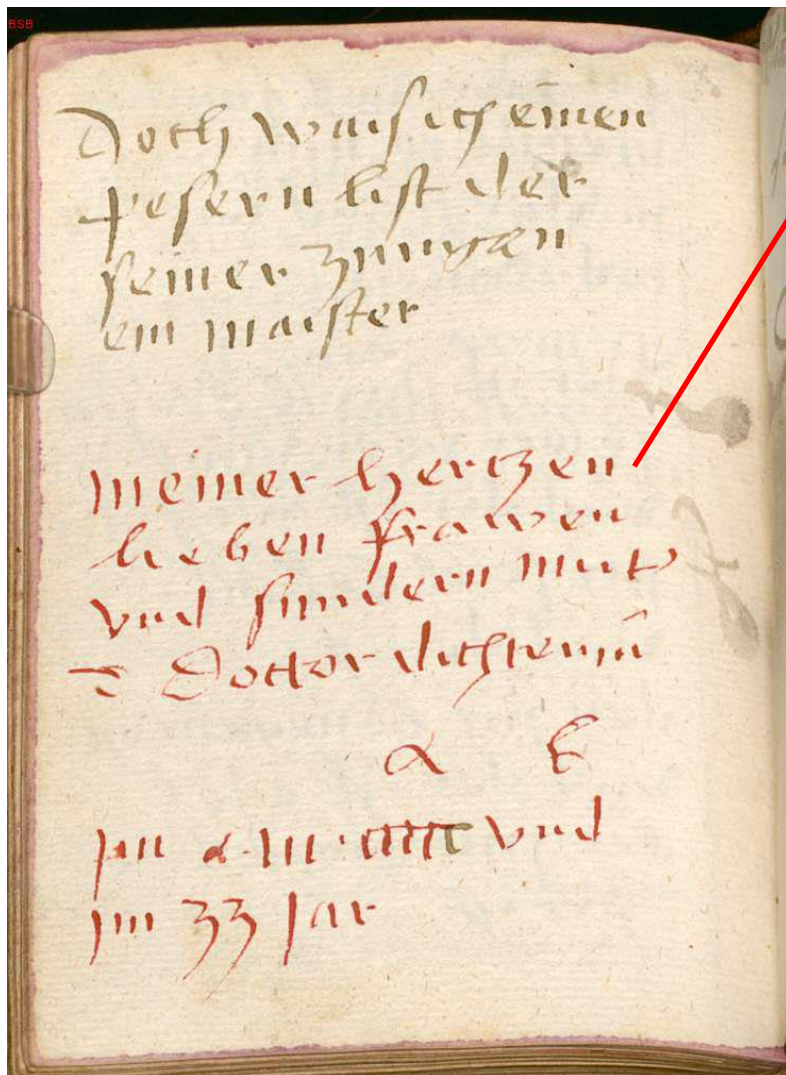 BSB
Doch wais ich einen
pesern list der
seiner zungen
ein maister
meiner hertzen
lieben frawen
vnd sundern mut
Doctor
a E
Jm a m ccccc vnd
jm 33 Jar